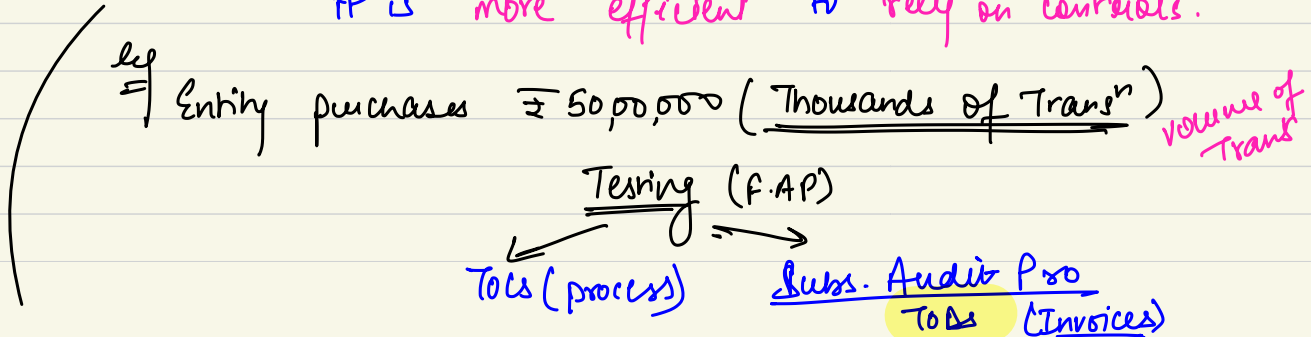 It is more efficient to rely on controls.
eg
Entity purchases ₹ 50,00,000 (Thousands of Transⁿ)
volume of
Transⁿ
Testing (F.AP)
TOCs (process) Subs. Audit Pro
TODs (Invoices)